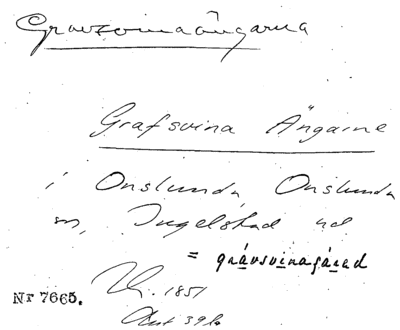 Gravsvinaängarna
Grafsvina Ängarne
i Onslunda, Onslunda
sn, Ingelstad hd
= gravsvinagärad
1851
Nr 7665.
Akt 39